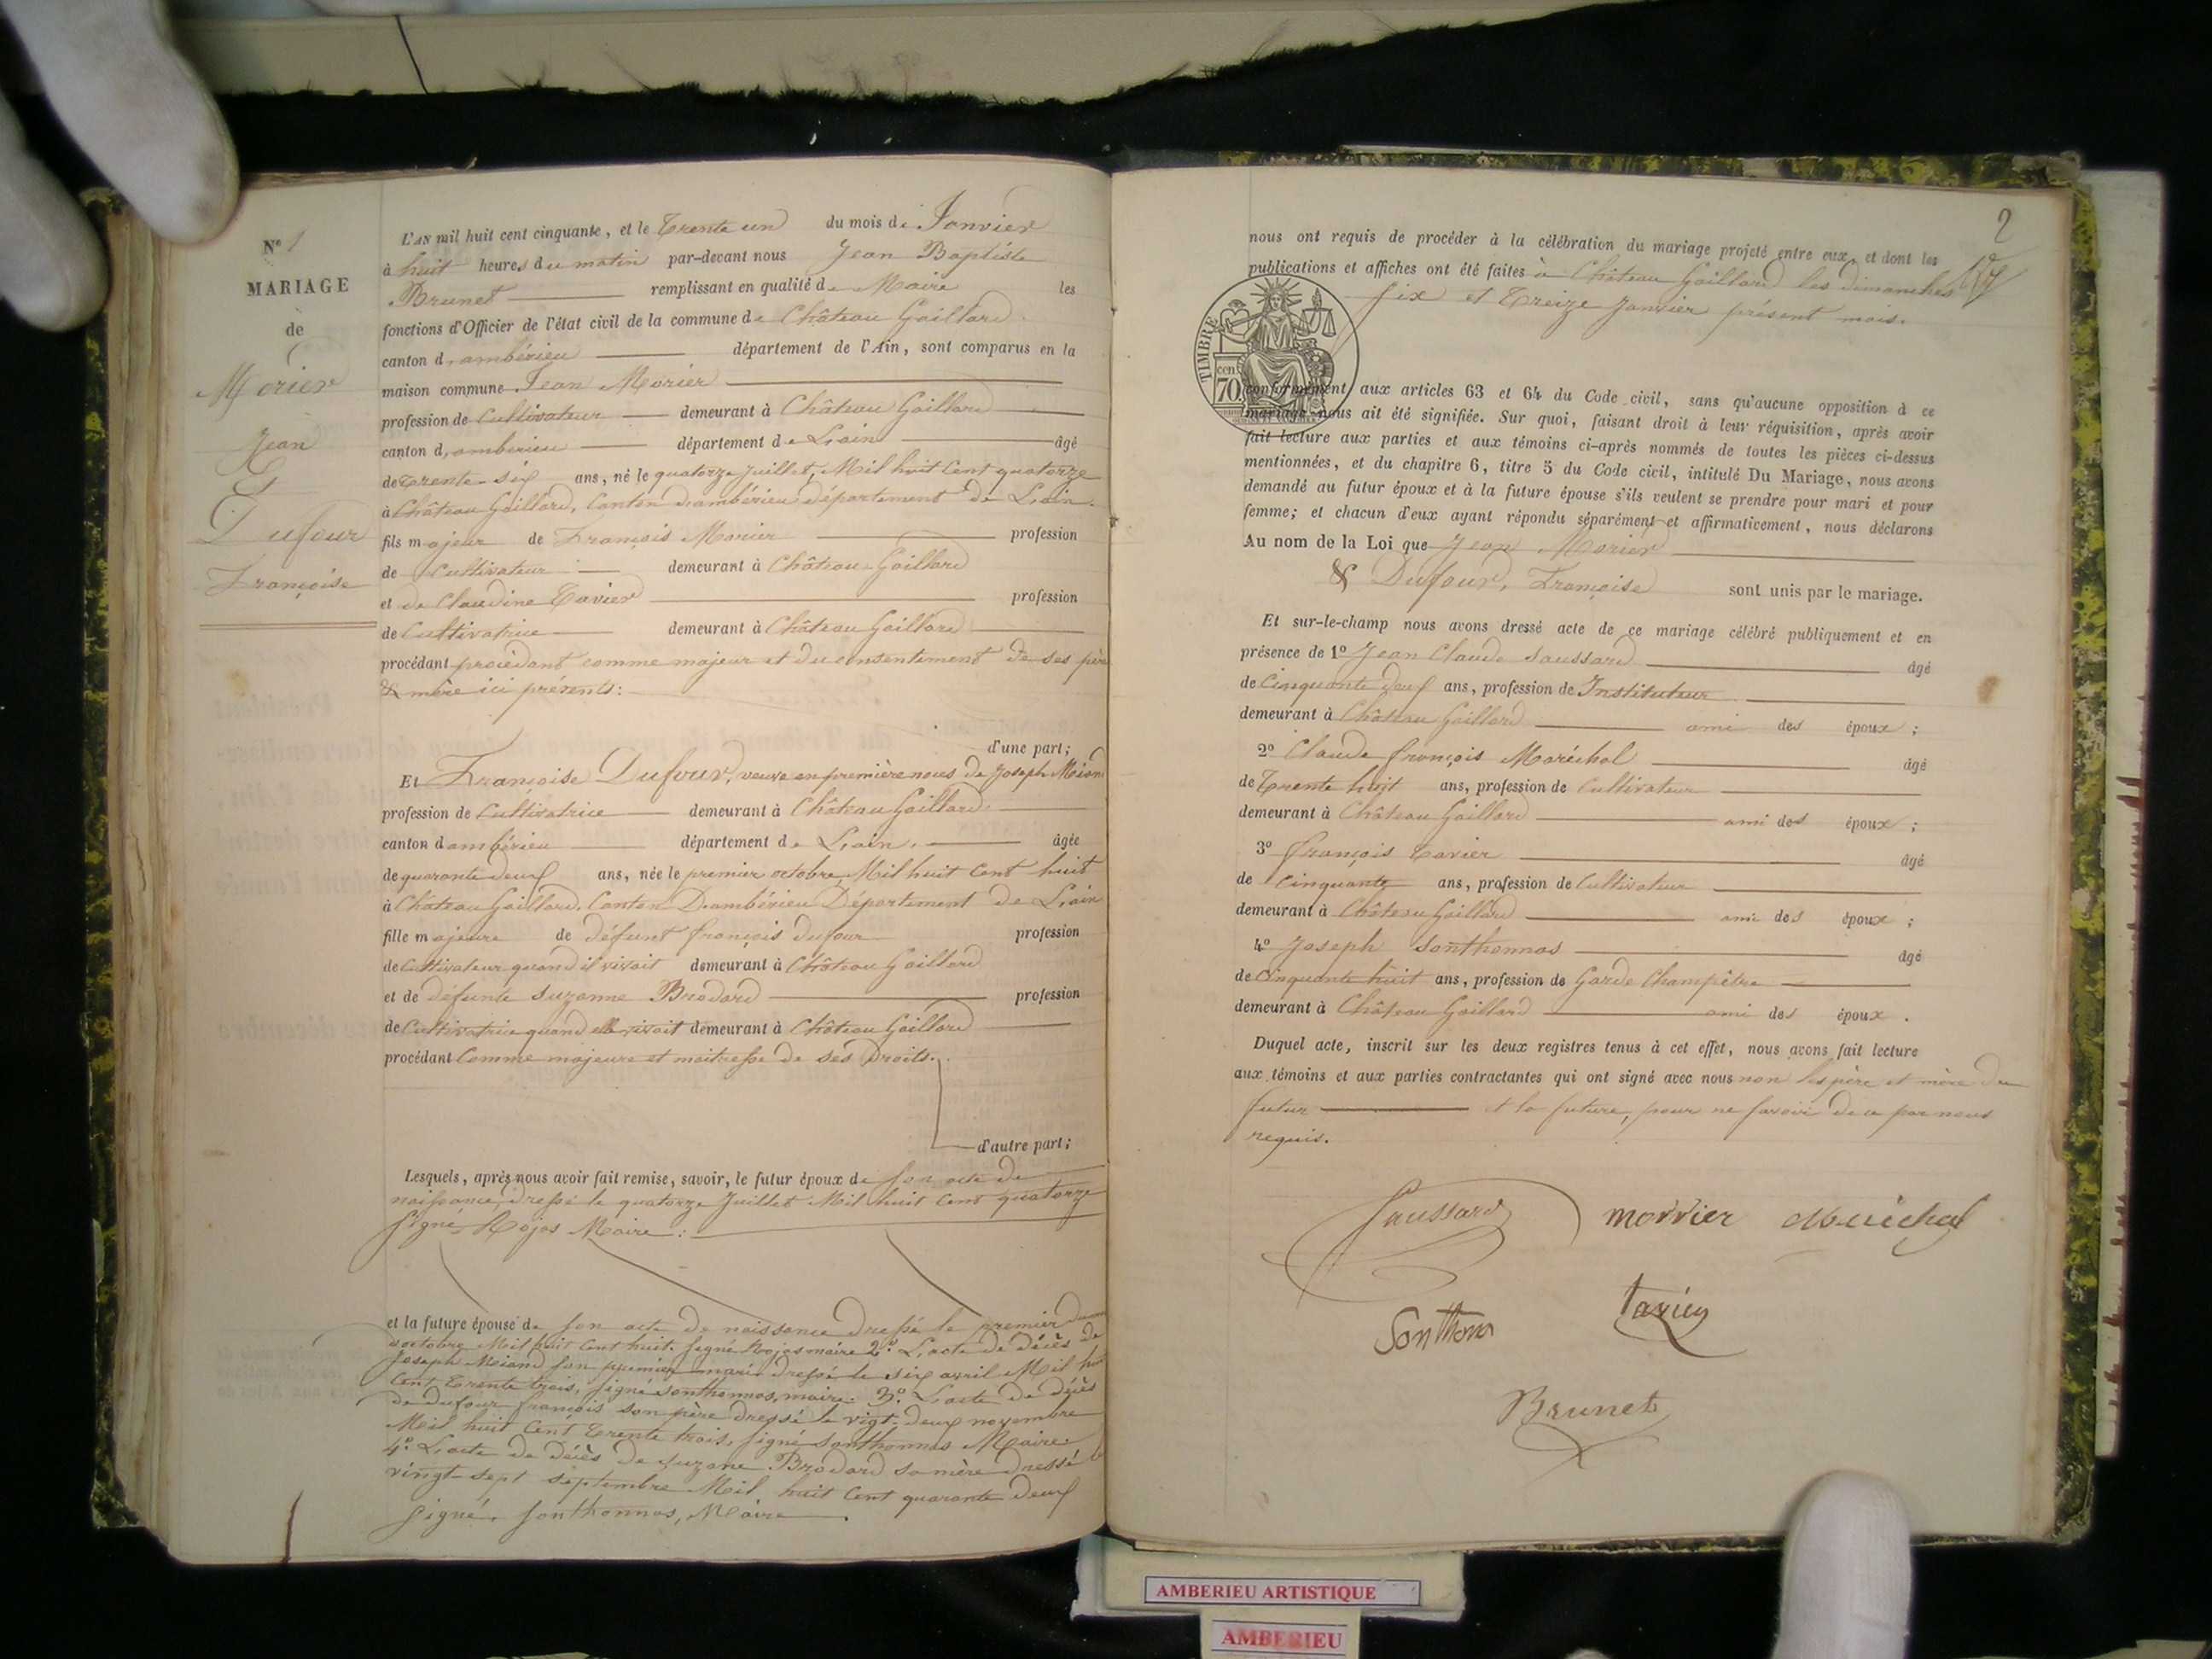 Nº 1
MARIAGE
de
Morier
Jean
&
Dufour
Françoise
L'AN mil huit cent cinquante, et le Trente un du mois de Janvier
à huit heures du matin par-devant nous Jean Baptiste
Brunet remplissant en qualité de Maire les
fonctions d'Officier de l'état civil de la commune de Château Gaillard
canton d'ambérieu département de l'Ain, sont comparus en la
maison commune Jean Morier
profession de Cultivateur demeurant à Château Gaillard
canton d'ambérieu département de L'ain âgé
de Trente-six ans, né le quatorze Juillet, Mil huit Cent quatorze
à Château Gaillard, Canton d'ambérieu département de L'ain.
fils majeur de François Morier profession
de Cultivateur demeurant à Château Gaillard
et de Claudine Tavier profession
de Cultivatrice demeurant à Château Gaillard
procédant procédant comme majeur et du consentement de ses père
& mère ici présents:
d'une part;
Et Françoise Dufour, veuve en première noces de Joseph Miand
profession de Cultivatrice demeurant à Château Gaillard
canton d'ambérieu département de L'ain. âgée
de quarante deux ans, née le premier octobre Mil huit Cent huit
à Château Gaillard. Canton D'ambérieu Département de L'ain
fille majeure de défunt françois dufour profession
de Cultivateur quand il vivait demeurant à Château Gaillard
et de défunte suzanne Brodard profession
de Cultivatrice quand elle vivait demeurant à Château Gaillard
procédant Comme majeure et maitresse de ses Droits.
d'autre part;
Lesquels, après nous avoir fait remise, savoir, le futur époux de son acte de
naissance, dressé le quatorze Juillet Mil huit Cent quatorze
signé, Rojas Maire:
et la future épouse de son acte de naissance dressé le premier
octobre Mil huit Cent huit. signé Rojas maire 2º. L'acte de décès de
Joseph Miand son premier mari dressé le six avril Mil huit
Cent Trente trois, signé sonthonnas, maire. 3º. L'acte de décès
de dufour françois son père dressé le vigt-deux novembre
Mil huit Cent Trente trois, signé sonthonnas Maire
4º. L'acte de décès de suzane Brodard sa mère dressé le
vingt-sept septembre Mil huit Cent quarante deux
signé, sonthonnas, Maire
2
nous ont requis de procéder à la célébration du mariage projeté entre eux, et dont les
publications et affiches ont été faites à Château Gaillard les dimanches
six et Treize Janvier présent mois.
TIMBRE
70 cen
conformément aux articles 63 et 64 du Code civil, sans qu'aucune opposition à ce
mariage nous ait été signifiée. Sur quoi, faisant droit à leur réquisition, après avoir
fait lecture aux parties et aux témoins ci-après nommés de toutes les pièces ci-dessus
mentionnées, et du chapitre 6, titre 5 du Code civil, intitulé Du Mariage, nous avons
demandé au futur époux et à la future épouse s'ils veulent se prendre pour mari et pour
femme; et chacun d'eux ayant répondu séparément et affirmativement, nous déclarons
Au nom de la Loi que Jean Morier
& Dufour, Françoise sont unis par le mariage.
Et sur-le-champ nous avons dressé acte de ce mariage célébré publiquement et en
présence de 1º Jean Claude Saussard âgé
de Cinquante deux ans, profession de Instituteur
demeurant à Château Gaillard ami des époux;
2º Claude françois Maréchal âgé
de Trente huit ans, profession de Cultivateur
demeurant à Château Gaillard ami des époux;
3º françois tavier âgé
de Cinquante ans, profession de Cultivateur
demeurant à Château Gaillard ami des époux;
4º Joseph Sonthonnas âgé
de Cinquante huit ans, profession de Garde Champêtre
demeurant à Château Gaillard ami des époux.
Duquel acte, inscrit sur les deux registres tenus à cet effet, nous avons fait lecture
aux témoins et aux parties contractantes qui ont signé avec nous non les père et mère du
futur et la future, pour ne savoir de ce par nous
requis.
Saussard morrier Maréchal
Sonthonas tavier
Brunet
AMBERIEU ARTISTIQUE
AMBERIEU